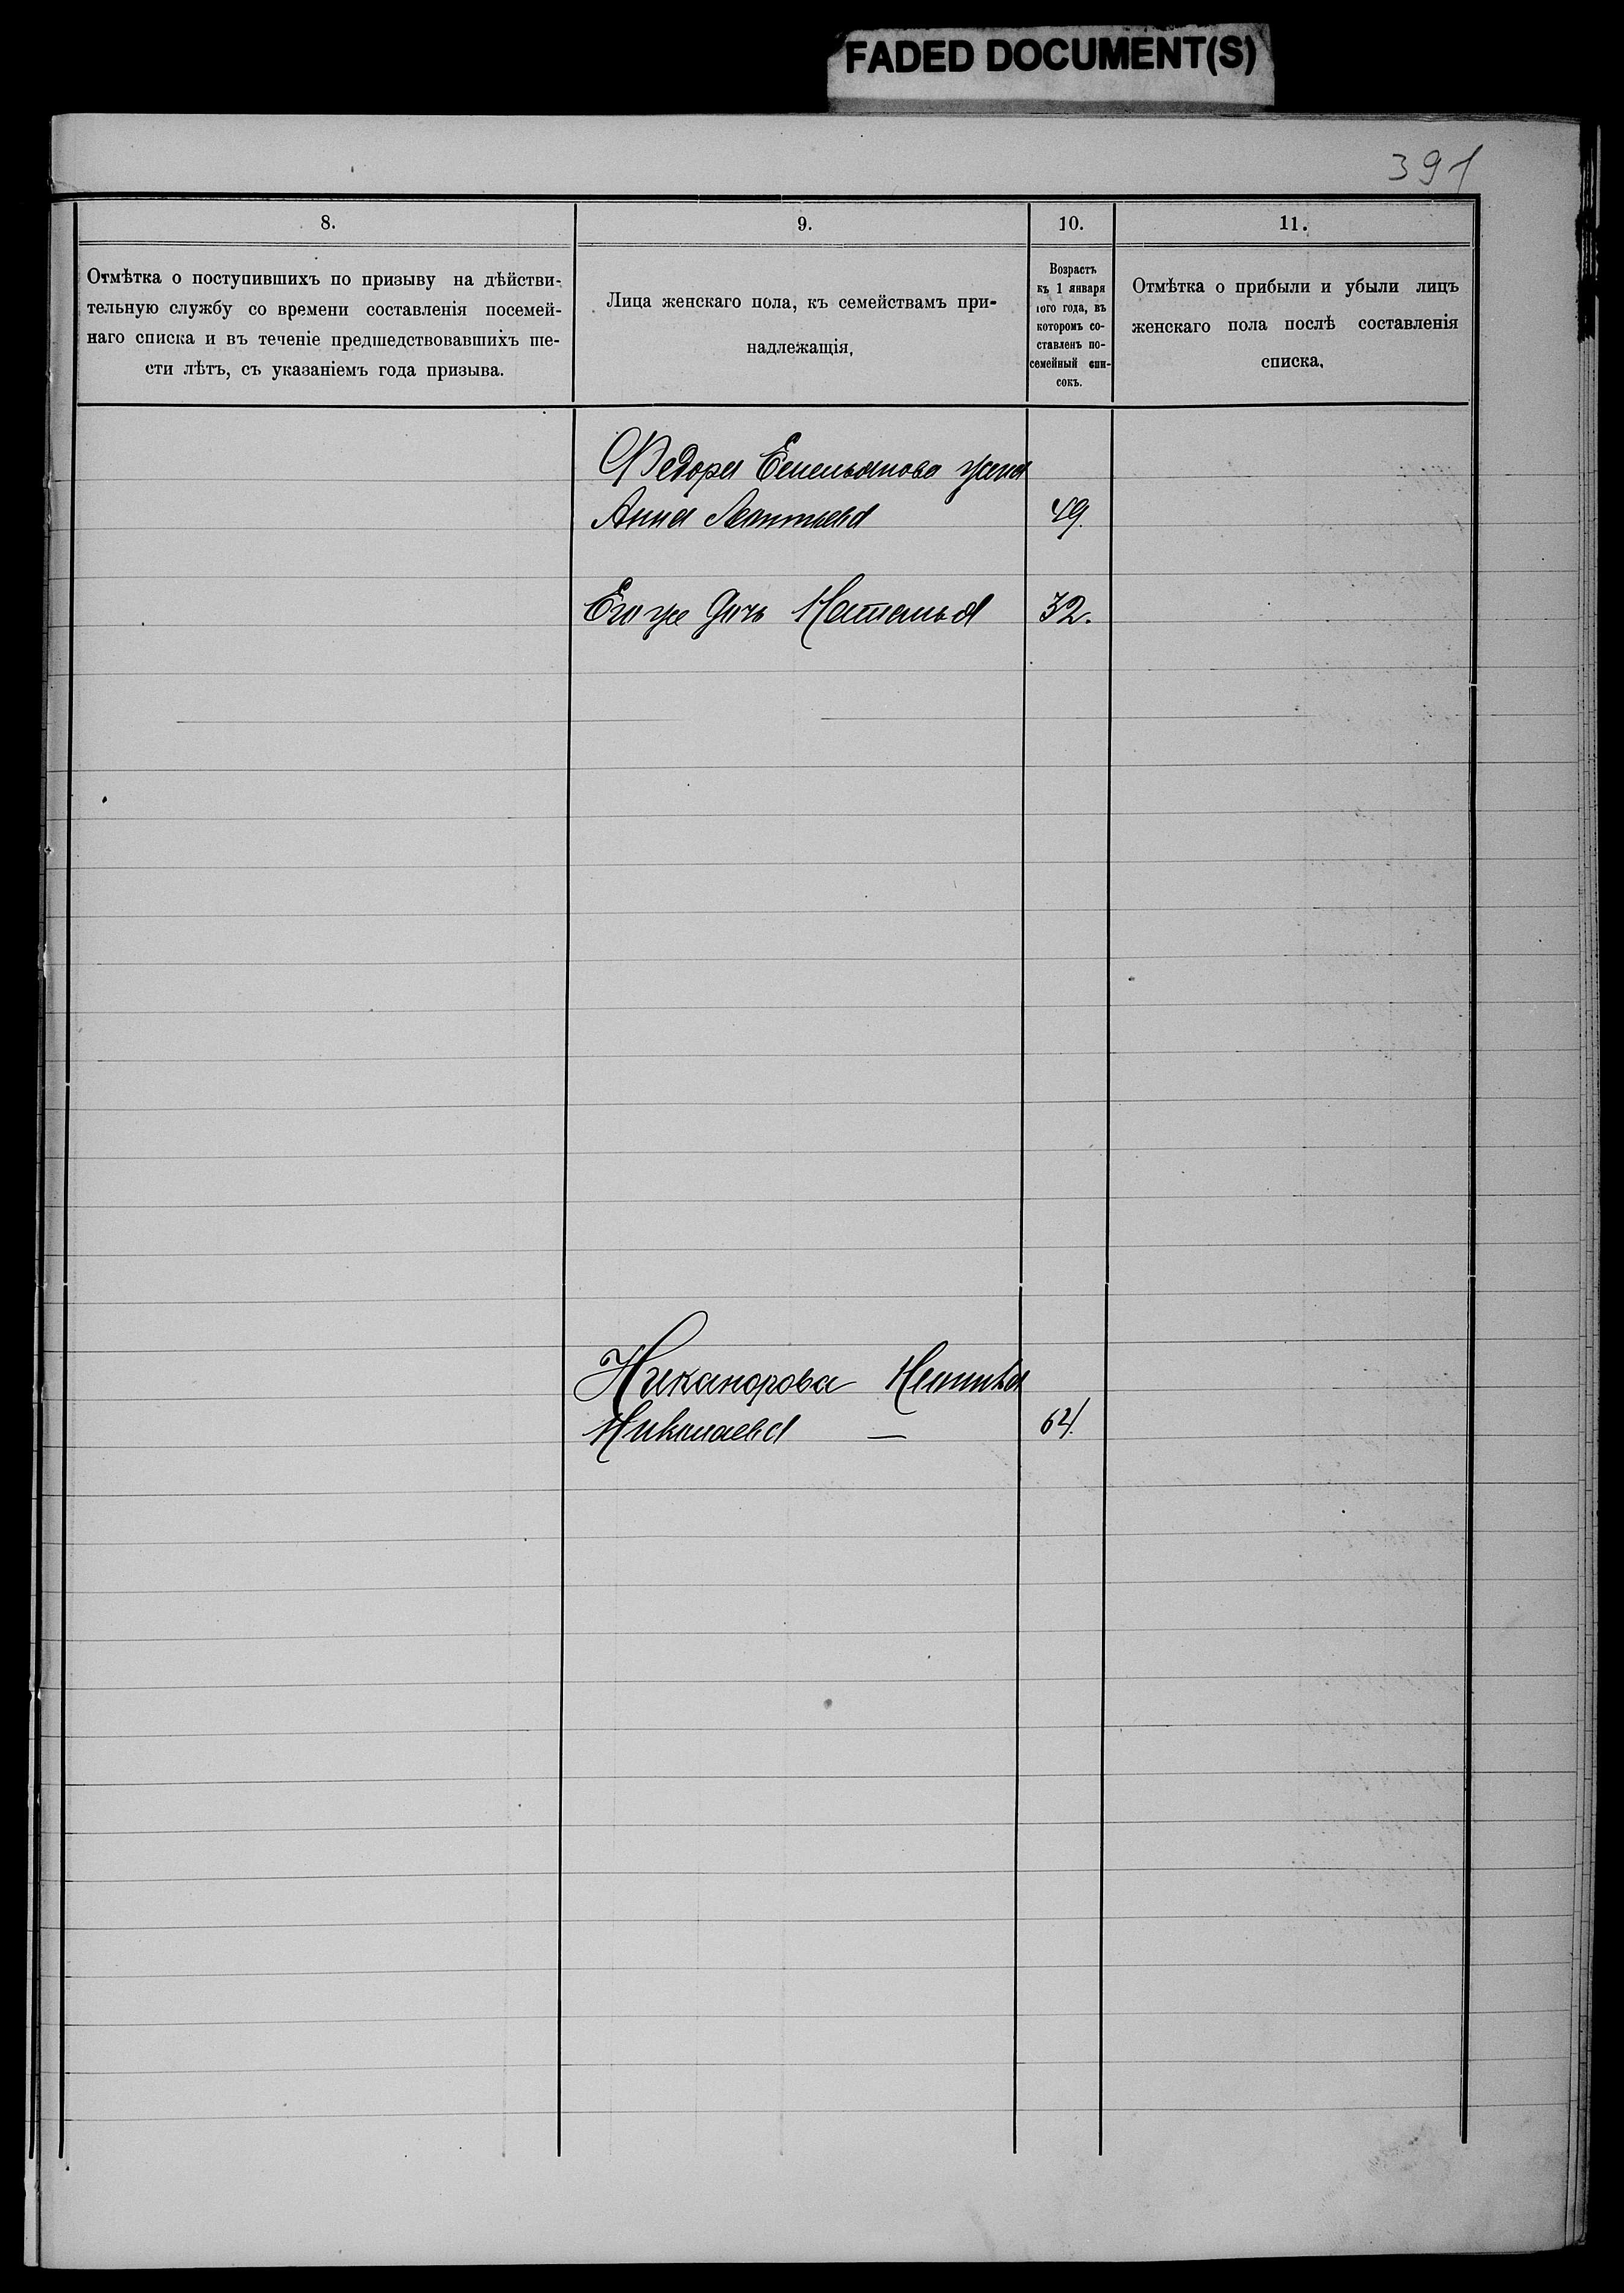 FADED DOCUMENT(S)
391
8.
9.
10.
11.
Отмѣтка о поступившихъ по призыву на дѣйстви-
тельную службу со времени составленія посемей-
наго списка и въ теченіе предшедствовавшихъ ше-
сти лѣтъ, съ указаніемъ года призыва.
Лица женскаго пола, къ семействамъ при-
надлежащія,
Возрастъ
къ 1 января
того года, въ
которомъ со-
ставленъ по-
семейный спи-
сокъ.
Отмѣтка о прибыли и убыли лицъ
женскаго пола послѣ составленія
списка,
Федора Емельянова жена
Анна 49.
Его же дочь Наталья 32.
Никанорова
Николаева — 64.